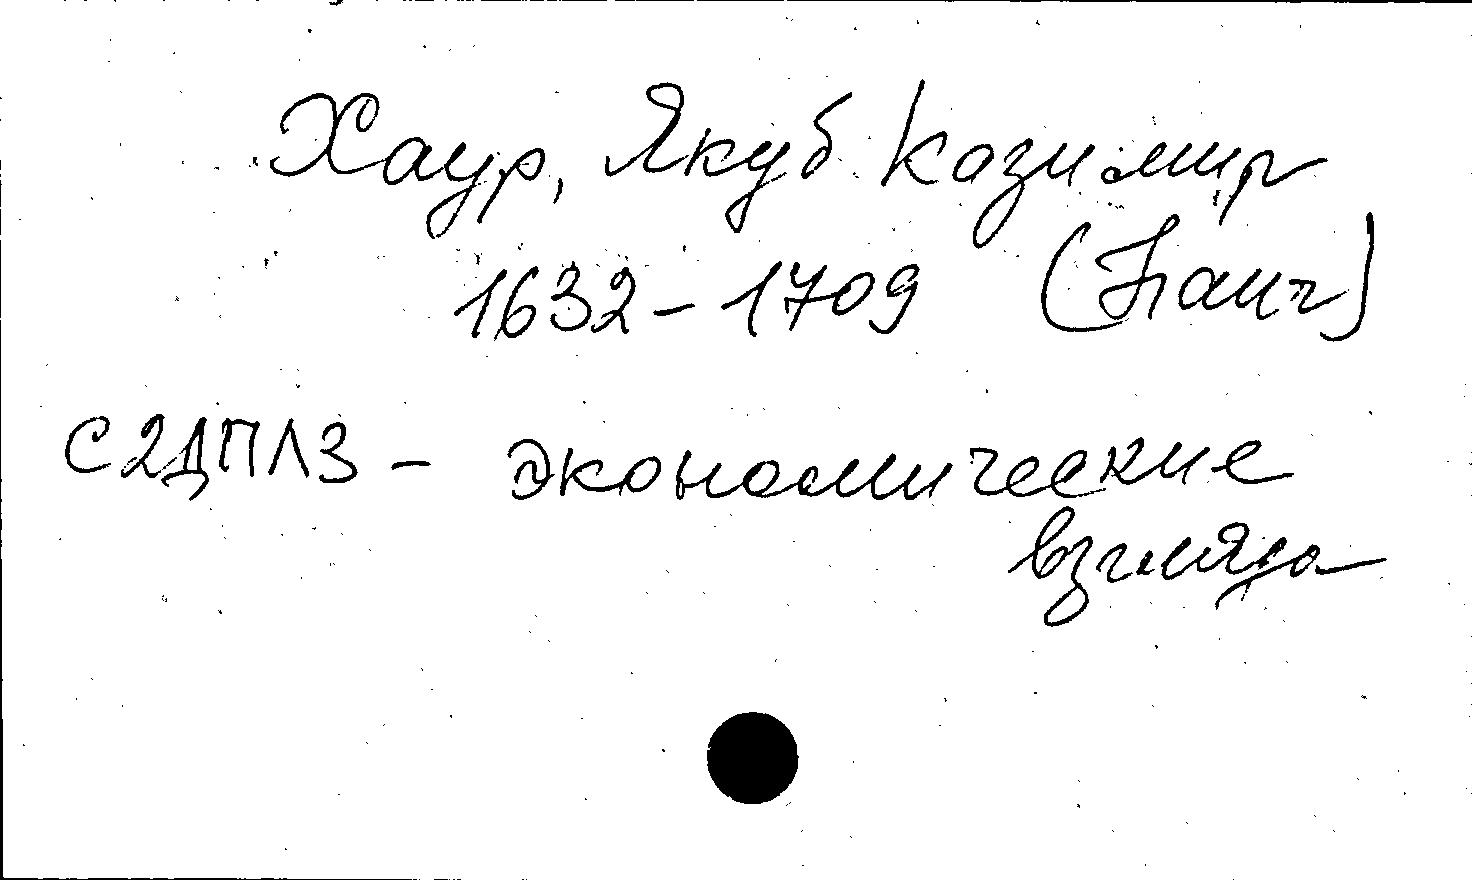 Хаур, Якуб Казимир
1632-1709
С2ДПЛЗ - экономические
взгляды